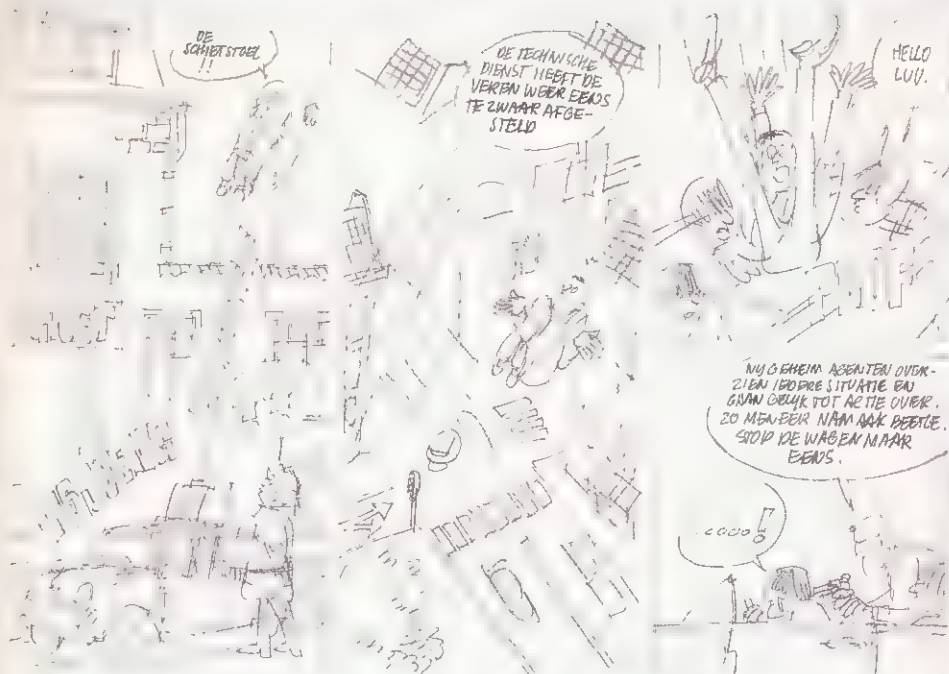 DE
SCHIETSTOEL
!!
DE TECHNISCHE
DIENST HEEFT DE
VEREN WEER EENS
TE ZWAAR AFGE-
STELD
HELLO
LUV.
WIJ GEHEIM AGENTEN OVER-
ZIEN IEDERE SITUATIE EN
GAAN GELIJK TOT ACTIE OVER.
ZO MENEER NAMAAK BEETLE.
STOP DE WAGEN MAAR
EENS.
..oooo!